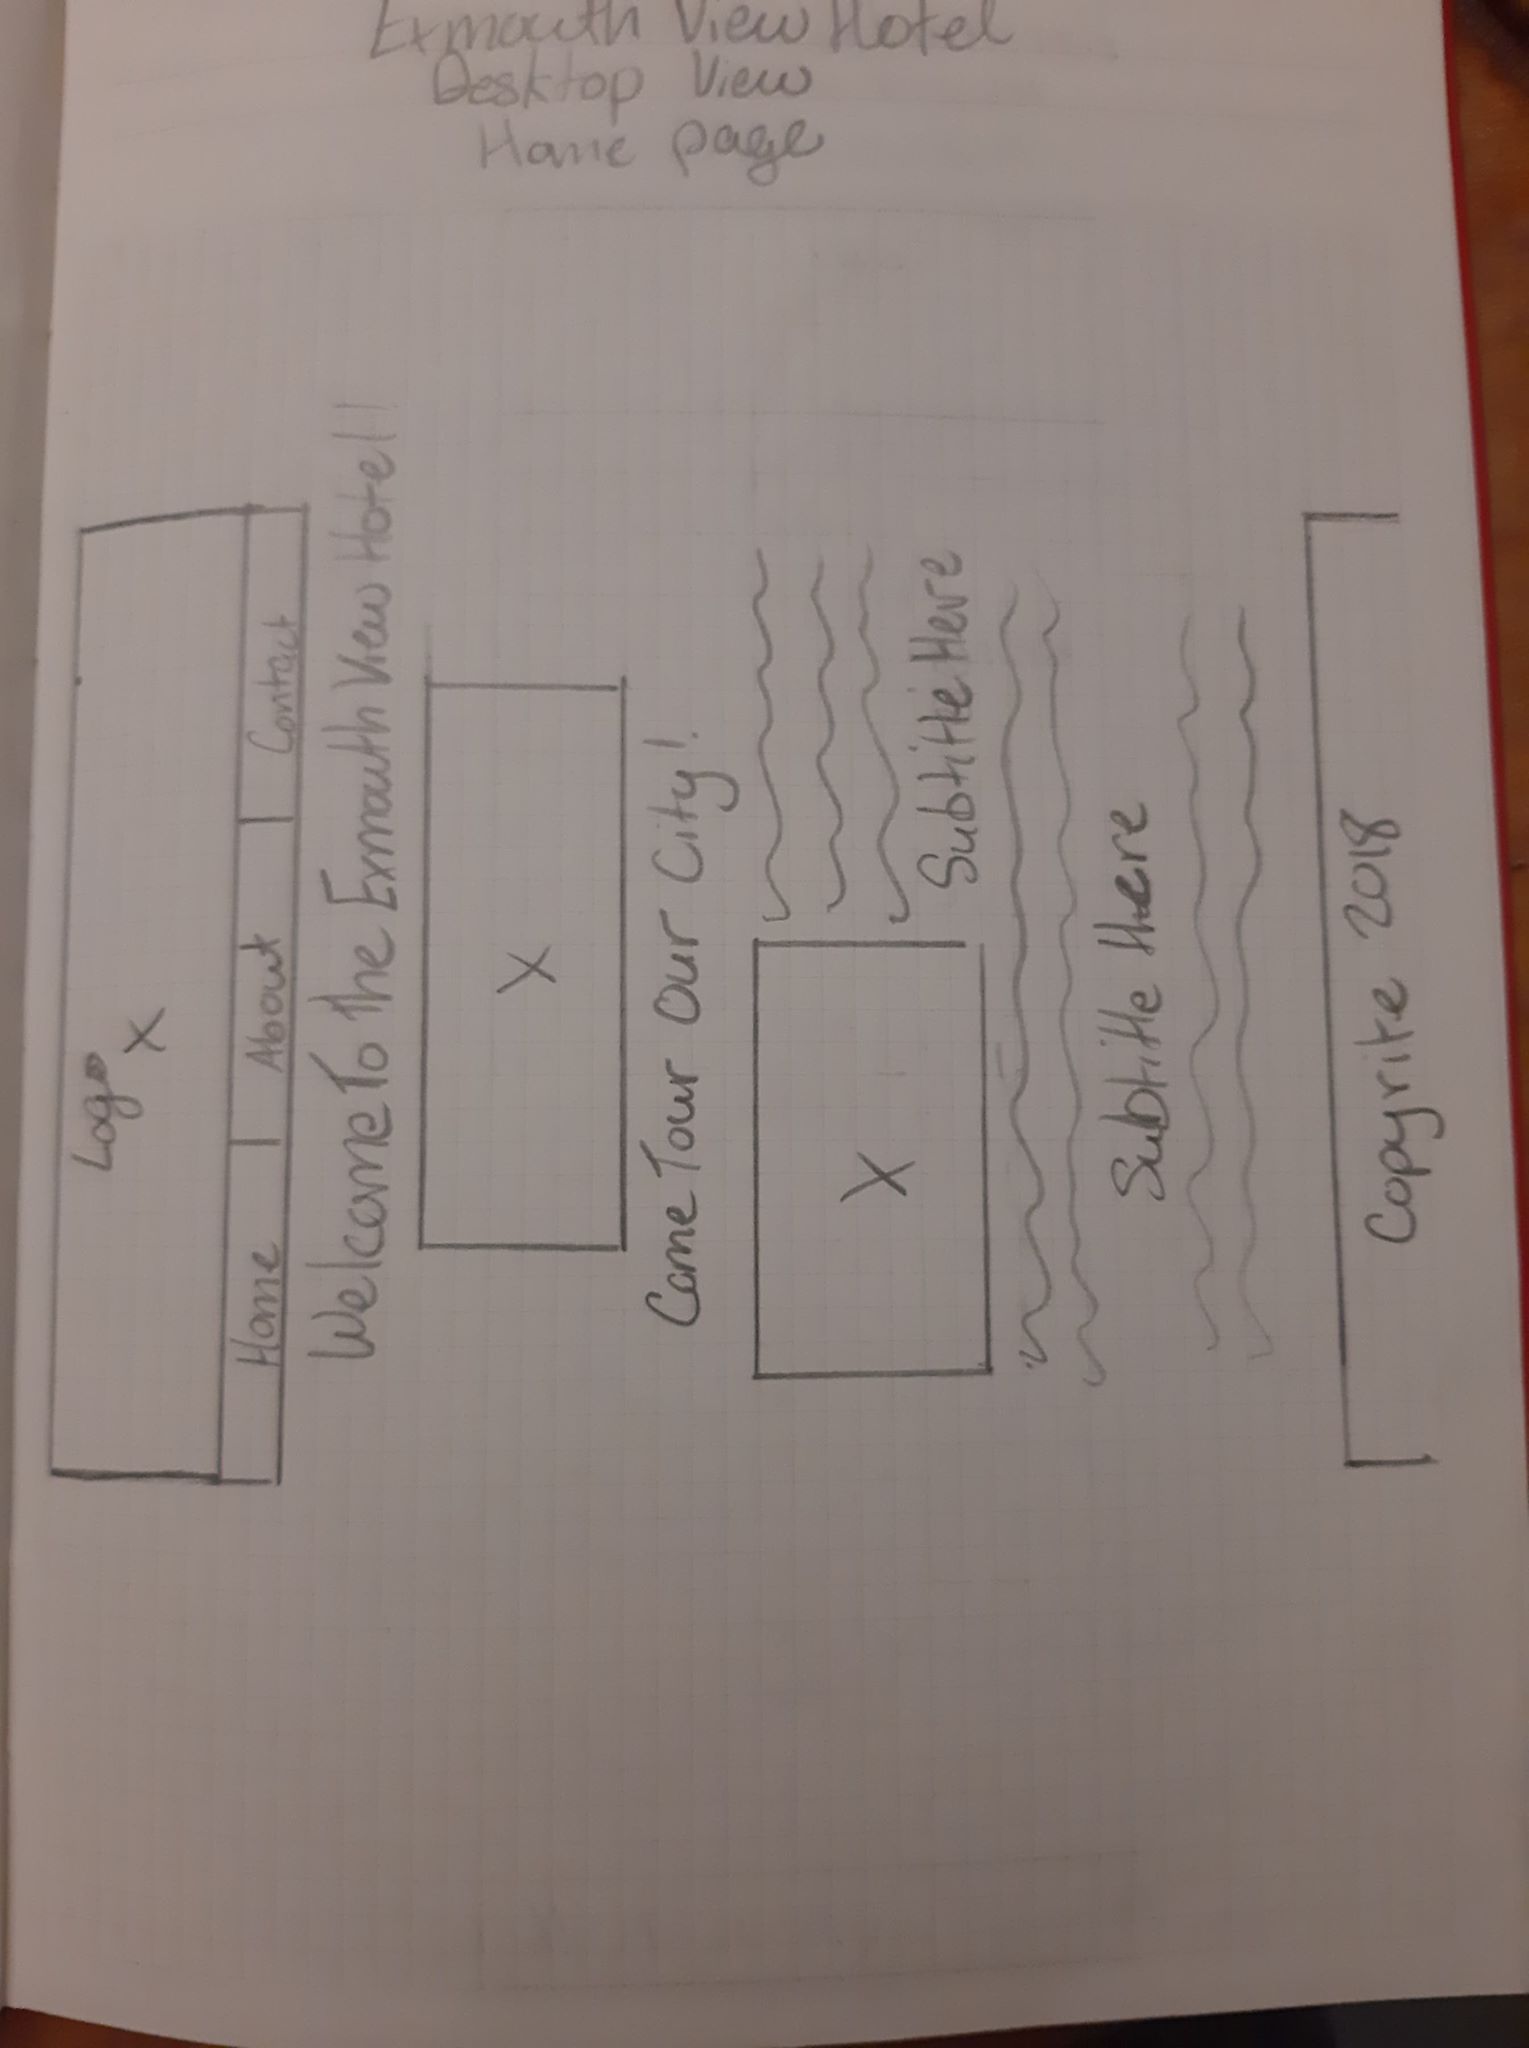 Exmouth View Hotel
Desktop View
Home page
Logo
X
Home About Contact
Welcome To the Exmouth View Hotel!
X
Come Tour Our City!
X
Subtitle Here
Subtitle there
Copyrite 2018